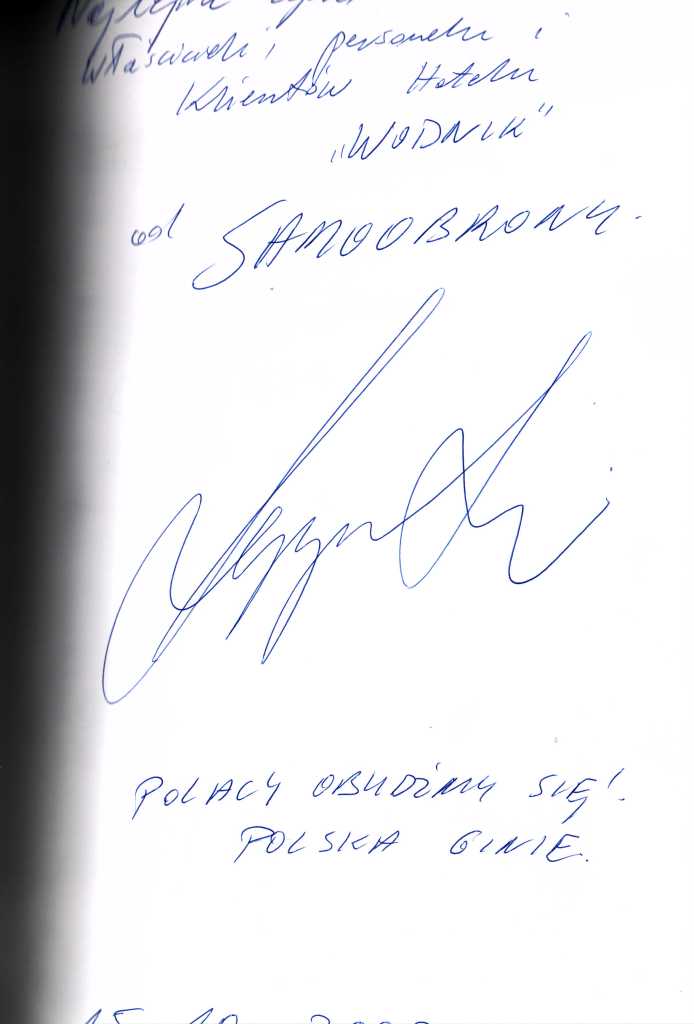 Najlepsze
Właścicielki, personelu i
Klientów Hotelu
„WODNIK”
od SAMOOBRONY.
POLACY OBUDŹMY SIĘ!
POLSKA GINIE.